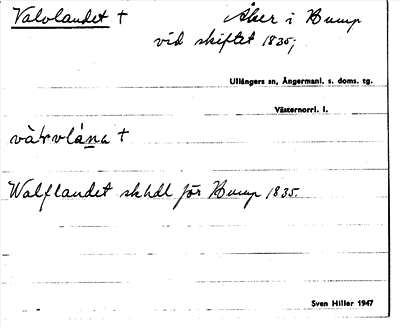 Valvlandet † Åker i Bump
vid skiftet 1835;
Ullångers sn, Ångermanl. s. doms. tg.
Västernorrl. l.
Walflandet skhdl för Bump 1835.
Sven Hiller 1947